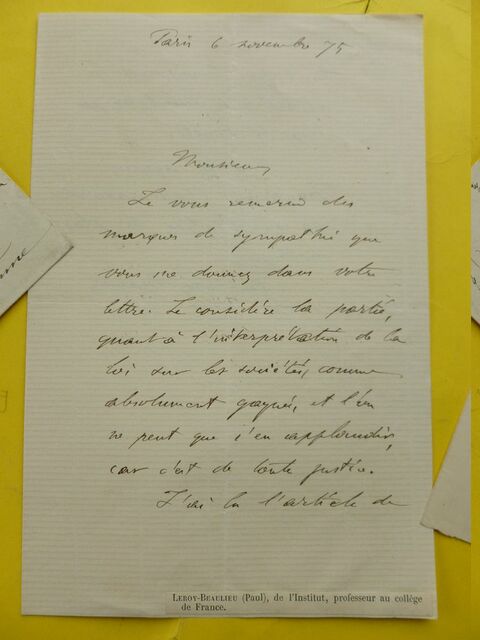 Paris 6 novembre 75
Monsieur,
Je vous remercie des
marques de sympathie que
vous me donnez dans votre
lettre. Je considère la partie,
quant à l'interprétation de la
loi sur les sociétés, comme
absolument gagnée, et l'on
ne peut que s'en applaudir,
car c'est de toute justice.
J'ai lu l'article de
LEROY-BEAULIEU (Paul), de l'Institut, professeur au collège
de France.